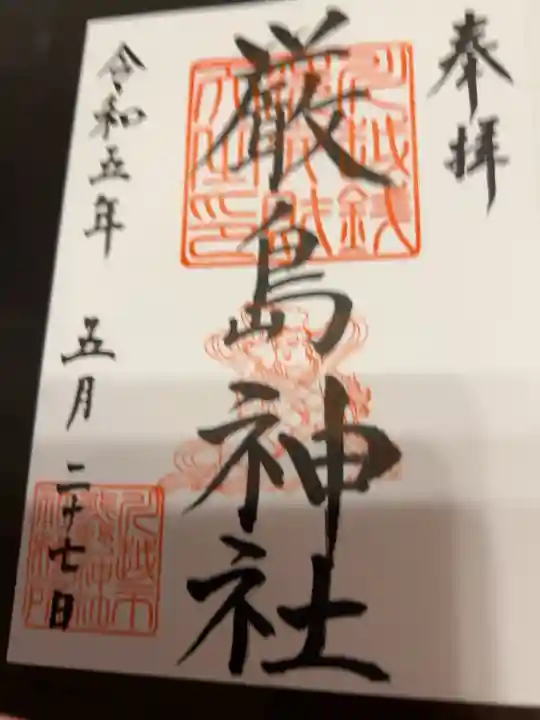 奉拝
厳島神社
令和五年 五月二十七日